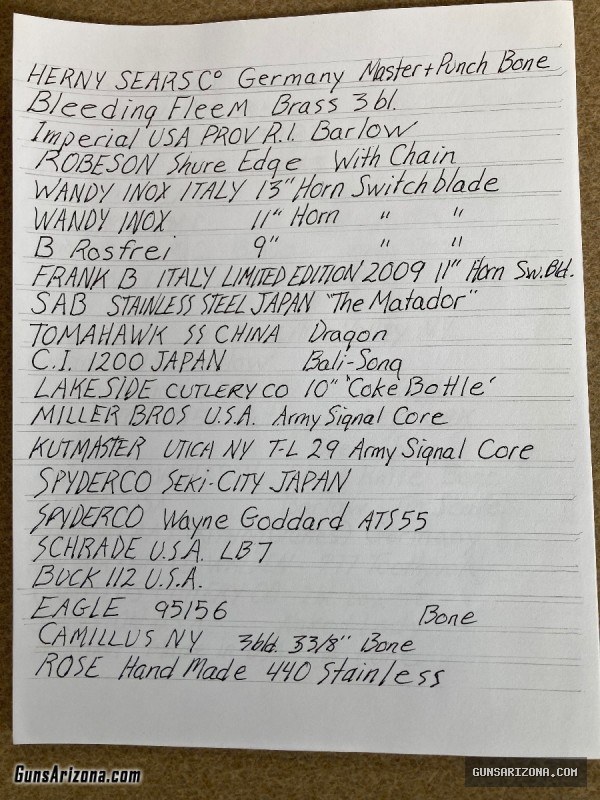 HERNY SEARS Co Germany Master+Punch Bone
Bleeding FleeM Brass 3bl.
Imperial USA PROV R.I. Barlow
ROBESON Shure Edge With Chain
WANDY INOX ITALY 13" Horn Switchblade
WANDY INOX 11" Horn " "
B Rosfrei 9" " "
FRANK B ITALY LIMITED EDITION 2009 11" Horn Sw.Bld.
SAB STAINLESS STEEL JAPAN "The Matador"
TOMAHAWK SS CHINA Dragon
C.I. 1200 JAPAN Bali-Song
LAKESIDE CUTLERY CO 10" 'Coke Bottle'
MILLER BROS U.S.A. Army Signal Core
KUTMASTER UTICA NY T-L 29 Army Signal Core
SPYDERCO SEKI-CITY JAPAN
SPYDERCO Wayne Goddard ATS55
SCHRADE U.S.A. LB7
BUCK 112 U.S.A.
EAGLE 95156 Bone
CAMILLUS NY 3bld. 33/8" Bone
ROSE Hand Made 440 Stainless
GunsArizona.com
GUNSARIZONA.COM